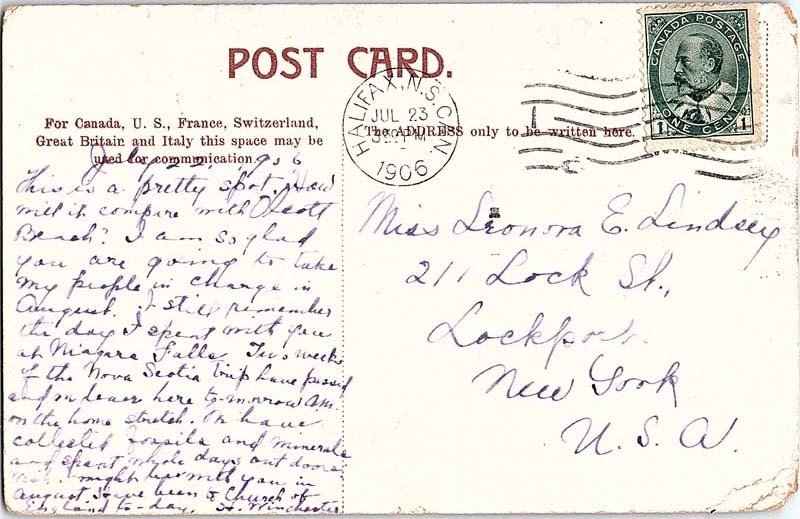 POST CARD.
For Canada, U. S., France, Switzerland,
Great Britain and Italy this space may be
used for communication.
The ADDRESS only to be written here.
CANADA POSTAGE
ONE CENT
1 1
HALIFAX, N.S. CAN
JUL 23
1906
July 22, 1906
This is a pretty spot. How
will it compare with Olcott
Beach? I am so glad
you are going to take
my people in charge in
August. I still remember
the day I spent with you
at Niagara Falls. Two weeks
of the Nova Scotia trip have passed
and we leave here to-morrow A.M.
on the home stretch. We have
collected fossils and minerals
and spent whole days out doors
Wish I might be with you in
August. Have been to Church of
England to-day. Winchester
Miss Leonora E. Lindsey
211 Lock St.,
Lockport
New York
U. S. A.